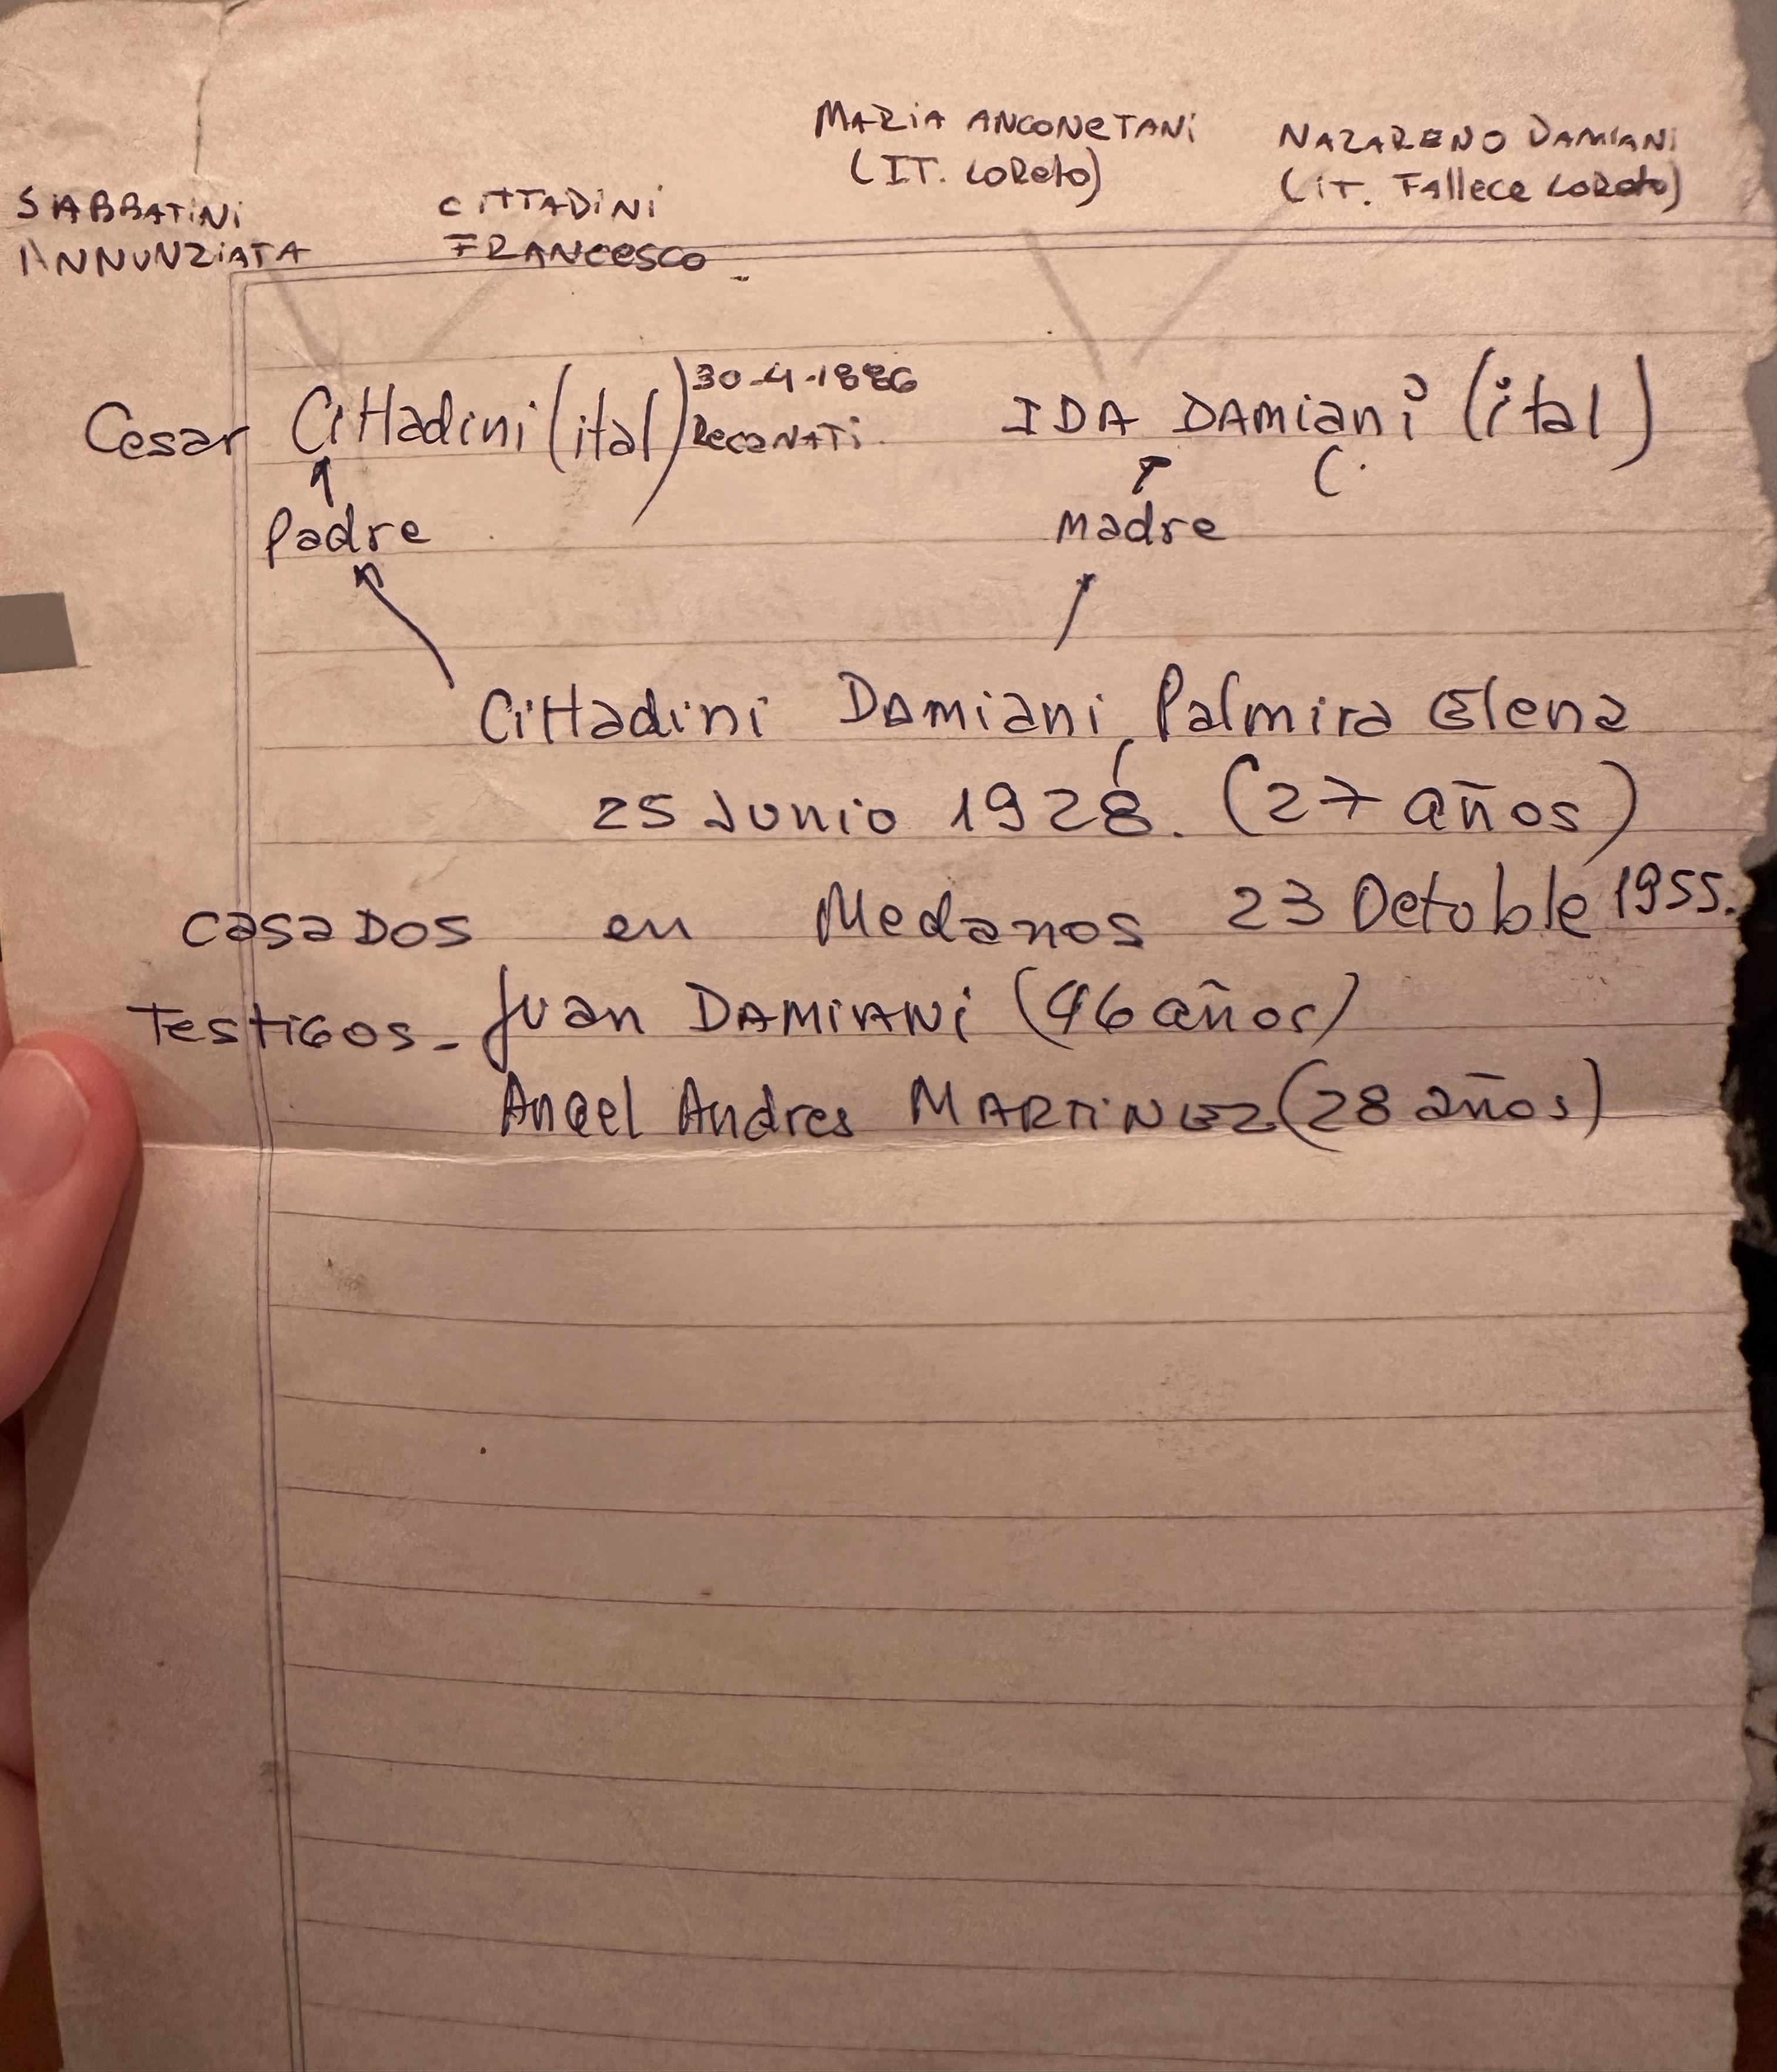 MARIA ANCONETANI
(IT. LOReto)
NAZARENO DAMIANI
(IT. Fallece LOReto)
SABBATINI
ANNUNZIATA
CITTADINI
FRANCESCO.
Cesar Cittadini (ital) 30-4-1886
RecaNATi.
IDA DAMiani (ital)
Padre
Madre
Cittadini Damiani, Palmira Elena
25 Junio 1928. (27 años)
casaDos en Medanos 23 Octubre 1955.
TestiGos - Juan DAMIANI (46 años)
Angel Andres MARTINEZ (28 años)